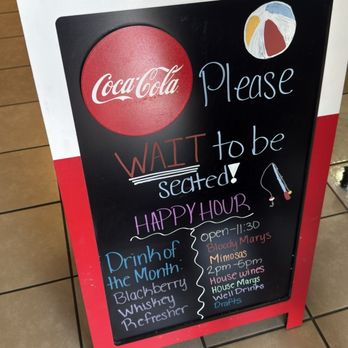 Coca-Cola
Please
WAIT to be
seated!
HAPPY HOUR
Drink of
the Month:
Blackberry
Whiskey
Refresher
open-11:30
Bloody Marys
Mimosas
2pm-6pm
House wines
House Margs
Well Drinks
Drafts